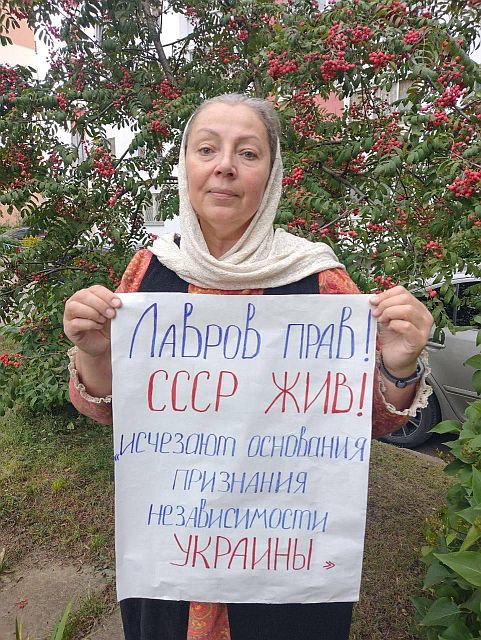 Лавров прав!
СССР ЖИВ!
„исчезают основания
признания
независимости
УКРАИНЫ"